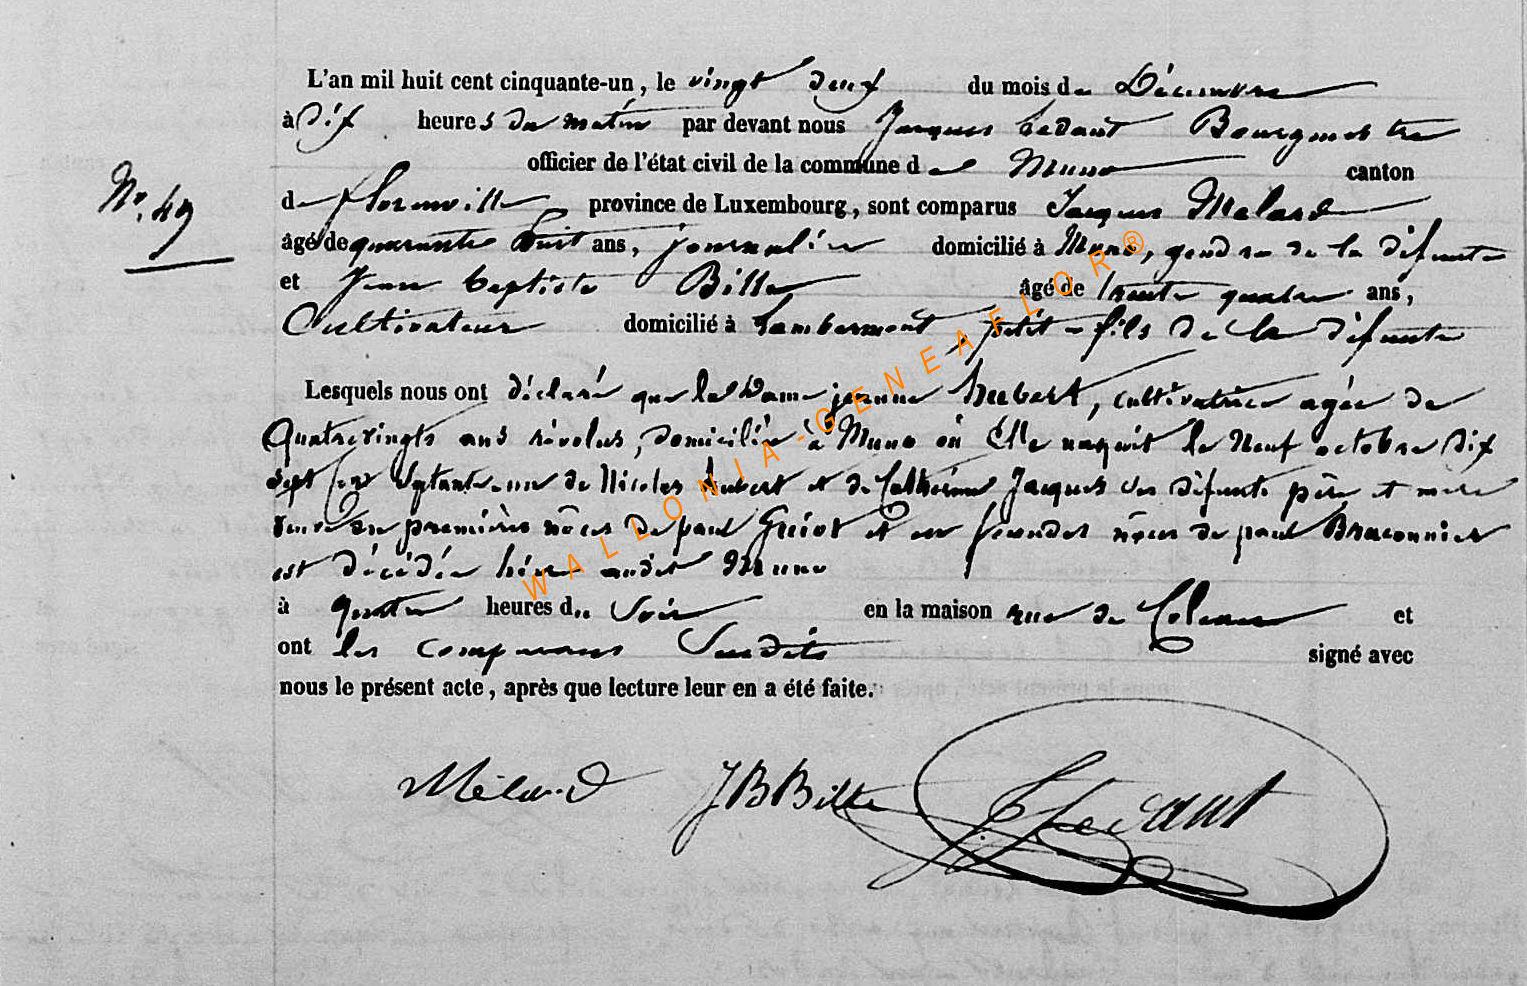 L'an mil huit cent cinquante-un, le vingt deux du mois de Décembre
à dix heures du matin par devant nous Jacques Ledant Bourgmestre
officier de l'état civil de la commune de Muno canton
de florenville province de Luxembourg, sont comparus Jacques Melard
N°. 49
âgé de quarante huit ans, journalier domicilié à Muno, gendre de la défunte
et Jean baptiste Bille âgé de trente quatre ans,
Cultivateur domicilié à Lambermont, petit-fils de la défunte
Lesquels nous ont déclaré que la Dame jeanne hubert, cultivatrice agée de
Quatrevingts ans révolus, domiciliée à Muno où Elle naquit le Neuf octobre dix
sept Cent septante-une de Nicolas hubert et de Catherine Jacques ses défunts père et mère
veuve en premières nôces de paul Guiot et en secondes nôces de paul Braconnier
est décédée hier audit Muno
à quatre heures du Soir en la maison rue de et
ont les comparans Susdits signé avec
nous le présent acte, après que lecture leur en a été faite.
Mélard JBBille Ledant
WALLONIA-GENEAFLOR®